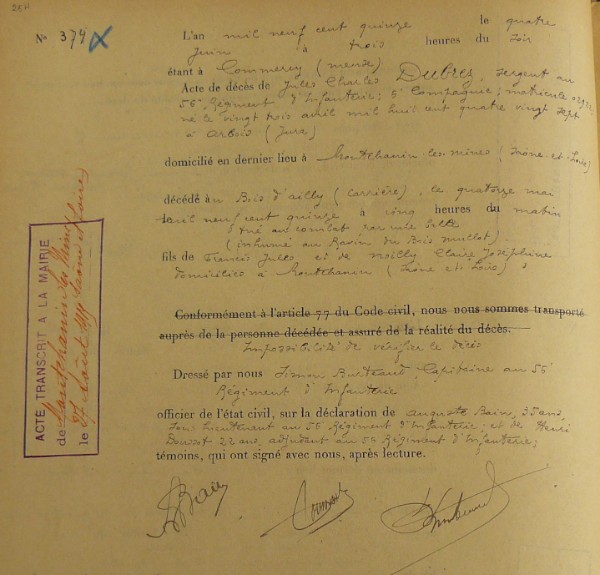 N° 374
L'an mil neuf cent quinze le quatre
Juin à trois heures du soir
étant à Commercy (meuse)
Acte de décès de Jules Charles Dubrez, sergent au
56e Régiment d'Infanterie; 5e Compagnie; matricule
né le vingt trois avril mil huit cent quatre vingt sept
à Arbois (Jura)
domicilié en dernier lieu à Montchanin-les-mines (Saône-et-Loire)
décédé au Bois d'ailly (Carrière), le quatorze mai
mil neuf cent quinze à cinq heures du matin
tué au combat par une balle
(inhumé au Ravin du Bois mullot)
fils de Francis Jules et de Noilly Claire Joséphine
domiciliés à Montchanin (Saône et Loire)
Conformément à l'article 77 du Code civil, nous nous sommes transporté
auprès de la personne décédée et assuré de la réalité du décès.
Impossibilité de vérifier le décès
Dressé par nous Simon, Capitaine au 56e
Régiment d'Infanterie
officier de l'état civil, sur la déclaration de Auguste Bain, 35 ans,
Sous Lieutenant au 56e Régiment d'Infanterie; et de Henri
22 ans, adjudant au 56e Régiment d'Infanterie;
témoins, qui ont signé avec nous, après lecture.
ACTE TRANSCRIT A LA MAIRIE
de Montchanin les Mines
le 27 Août 1915 Saône et Loire